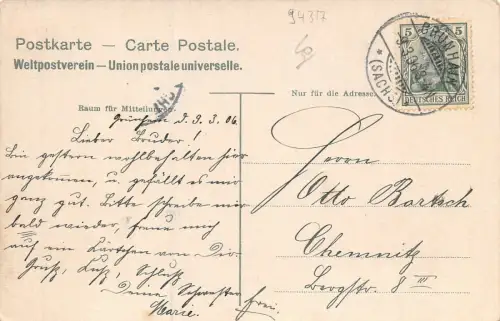 94317
Postkarte — Carte Postale.
Weltpostverein — Union postale universelle.
Raum für Mitteilungen
Nur für die Adresse
5 5
DEUTSCHES REICH
GRÜNHAIN
* (SACHS.)
Grünhain d. 9. 3. 06.
Lieber Bruder!
Bin gestern wohlbehalten hier
angekommen, u. gefällt es mir
ganz gut. Bitte schreibe mir
bald wieder, freue mich
auf ein Kärtchen von Dir.
Gruß, Kuß! Schluß
Deine Schwester
Marie.
Herrn
Otto Bartsch
Chemnitz
Bergstr. 8 III
frei.